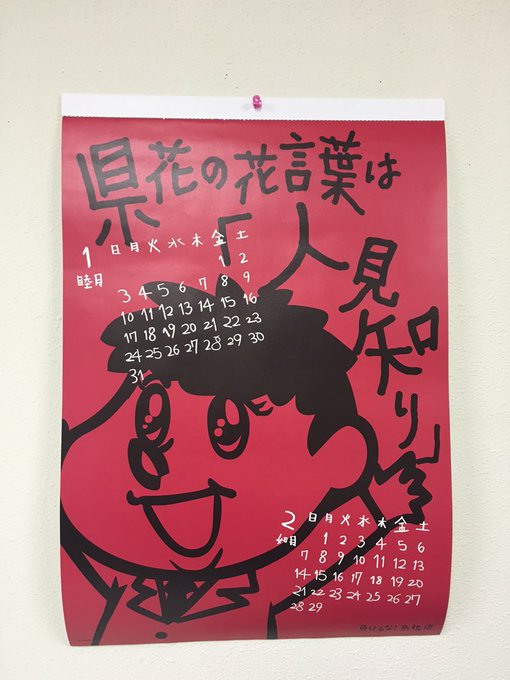 県花の花言葉は
「人
見
知
り」
1
睦月
日 月 火 水 木 金 土
1 2
3 4 5 6 7 8 9
10 11 12 13 14 15 16
17 18 19 20 21 22 23
24 25 26 27 28 29 30
31
2
如月
日 月 火 水 木 金 土
1 2 3 4 5 6
7 8 9 10 11 12 13
14 15 16 17 18 19 20
21 22 23 24 25 26 27
28 29
負けるな!